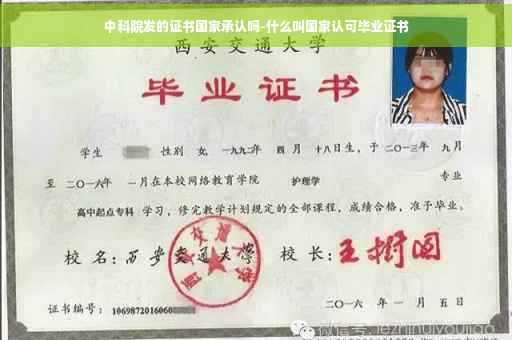 中科院发的证书国家承认吗-什么叫国家认可毕业证书
西安交通大学
毕业证书
学生 性别 女, 一九九二年 四月 十八日生, 于二〇一三年 九月
至 二〇一六年 一月在本校网络教育学院 护理学 专业
高中起点专科 学习, 修完教学计划规定的全部课程, 成绩合格, 准予毕业。
校 名: 西安交通大学 校 长: 王树国
西安交通大学
证书编号: 1069872016060
二〇一六 年 一 月 五 日
微信号: jezhinuiyoujiao